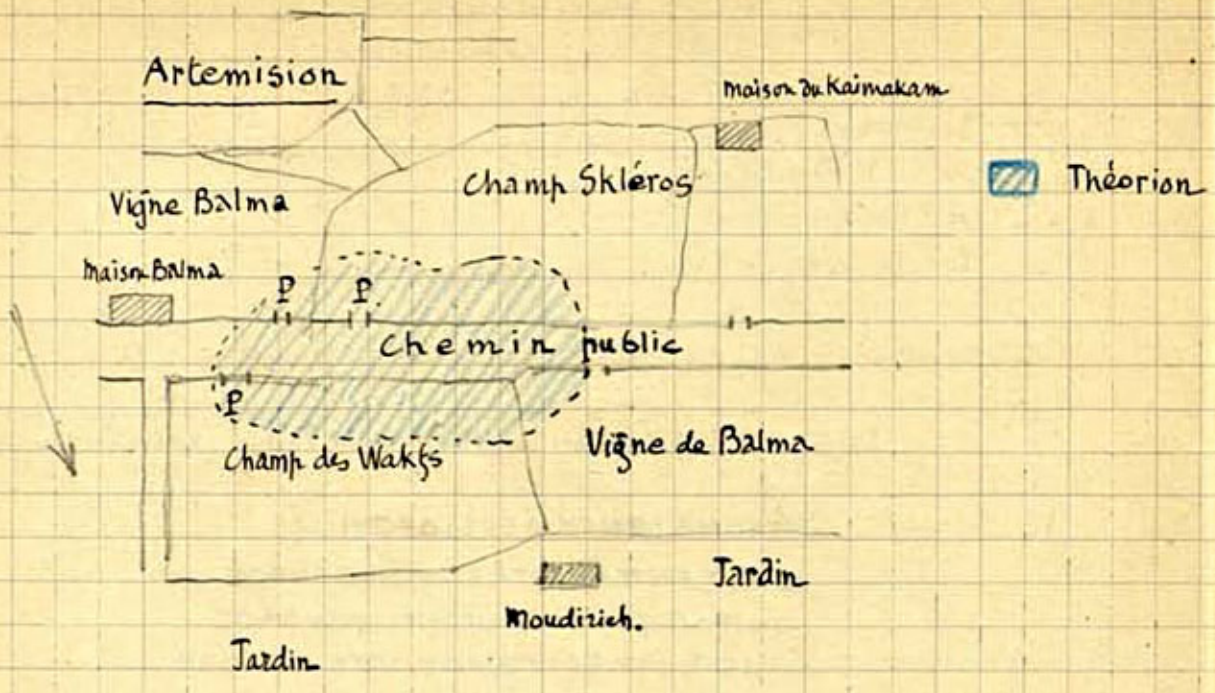 Artemision
maison du Kaimakam
Champ Skléros
Théorion
Vigne Balma
Maison Balma
P
P
Chemin public
P
Champ des Wakfs
Vigne de Balma
Jardin
Moudirieh.
Jardin